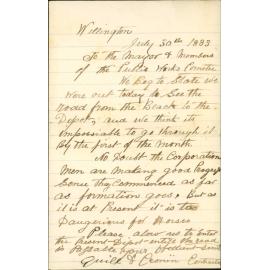 Wellington
July 30th 1883
To the Mayor & Members
of the Public Works Comitee
We Beg to State we
were out today to See the
road from the Beach to the
Depot, and we think its
impossiable to go through it
by the first of the month.
No Doubt the Corporation
Men are making good Progress
Sence they Commenced as far
as formation goes, But as
it is at Present it is too
Dangerous for Horses
Please alow us to Enter
the Present Depot untill the road
is Passable Your Obedient
Quill & Cronin